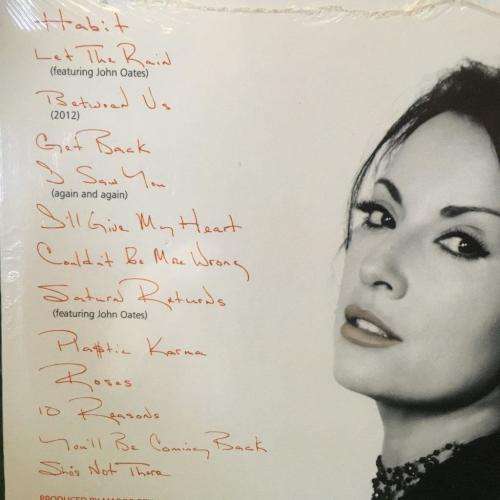 Habit
Let The Rain
(featuring John Oates)
Between Us
(2012)
Get Back
I Saw You
(again and again)
I'll Give My Heart
Couldn't Be More Wrong
Saturn Returns
(featuring John Oates)
Pla$tic Karma
Roses
10 Reasons
You'll Be Coming Back
She's Not There
PRODUCED BY